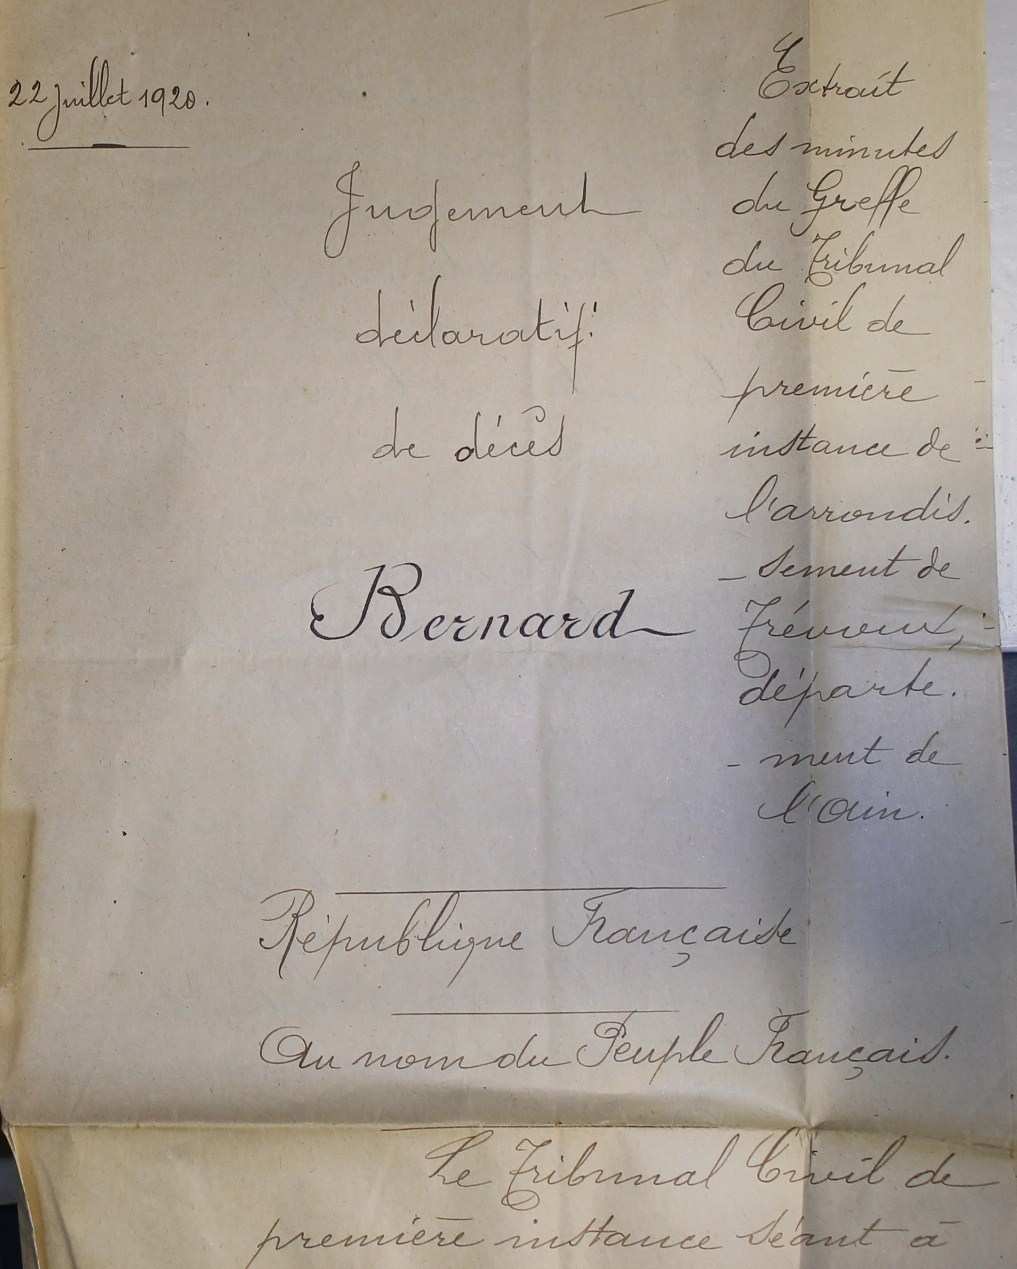 22 juillet 1920.
Jugement
déclaratif
de décès
Bernard
Extrait
des minutes
du Greffe
du Tribunal
Civil de
première
instance de
l'arrondis.
- sement de
Trévoux,
départe.
- ment de
l'Ain.
République Française
Au nom du Peuple Français.
Le Tribunal Civil de
première instance séant à